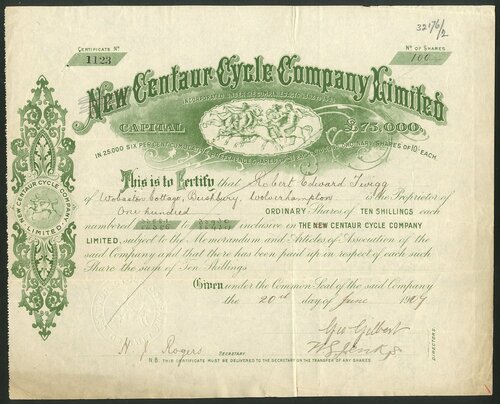 32176/2
CERTIFICATE Nº
1123
Nº OF SHARES
100
New Centaur Cycle Company Limited
INCORPORATED UNDER THE COMPANIES ACTS
CAPITAL £75,000,
IN 25,000 SIX PER CENT SHARES OF EACH ORDINARY SHARES OF 10/- EACH.
This is to Certify that Robert Edward Twigg
of Wobaston Cottage, Bushbury, Wolverhampton is the Proprietor of
One hundred ORDINARY Shares of TEN SHILLINGS each
numbered to inclusive in THE NEW CENTAUR CYCLE COMPANY
LIMITED, subject to the Memorandum and Articles of Association of the
said Company and that there has been paid up in respect of each such
Share the sum of Ten Shillings.
Given under the Common Seal of the said Company
the 20th day of June 1907
Geo Gilbert
DIRECTORS.
N. J. Rogers SECRETARY
N.B. THIS CERTIFICATE MUST BE DELIVERED TO THE SECRETARY ON TRANSFER OF ANY SHARES.
NEW CENTAUR CYCLE COMPANY
LIMITED.